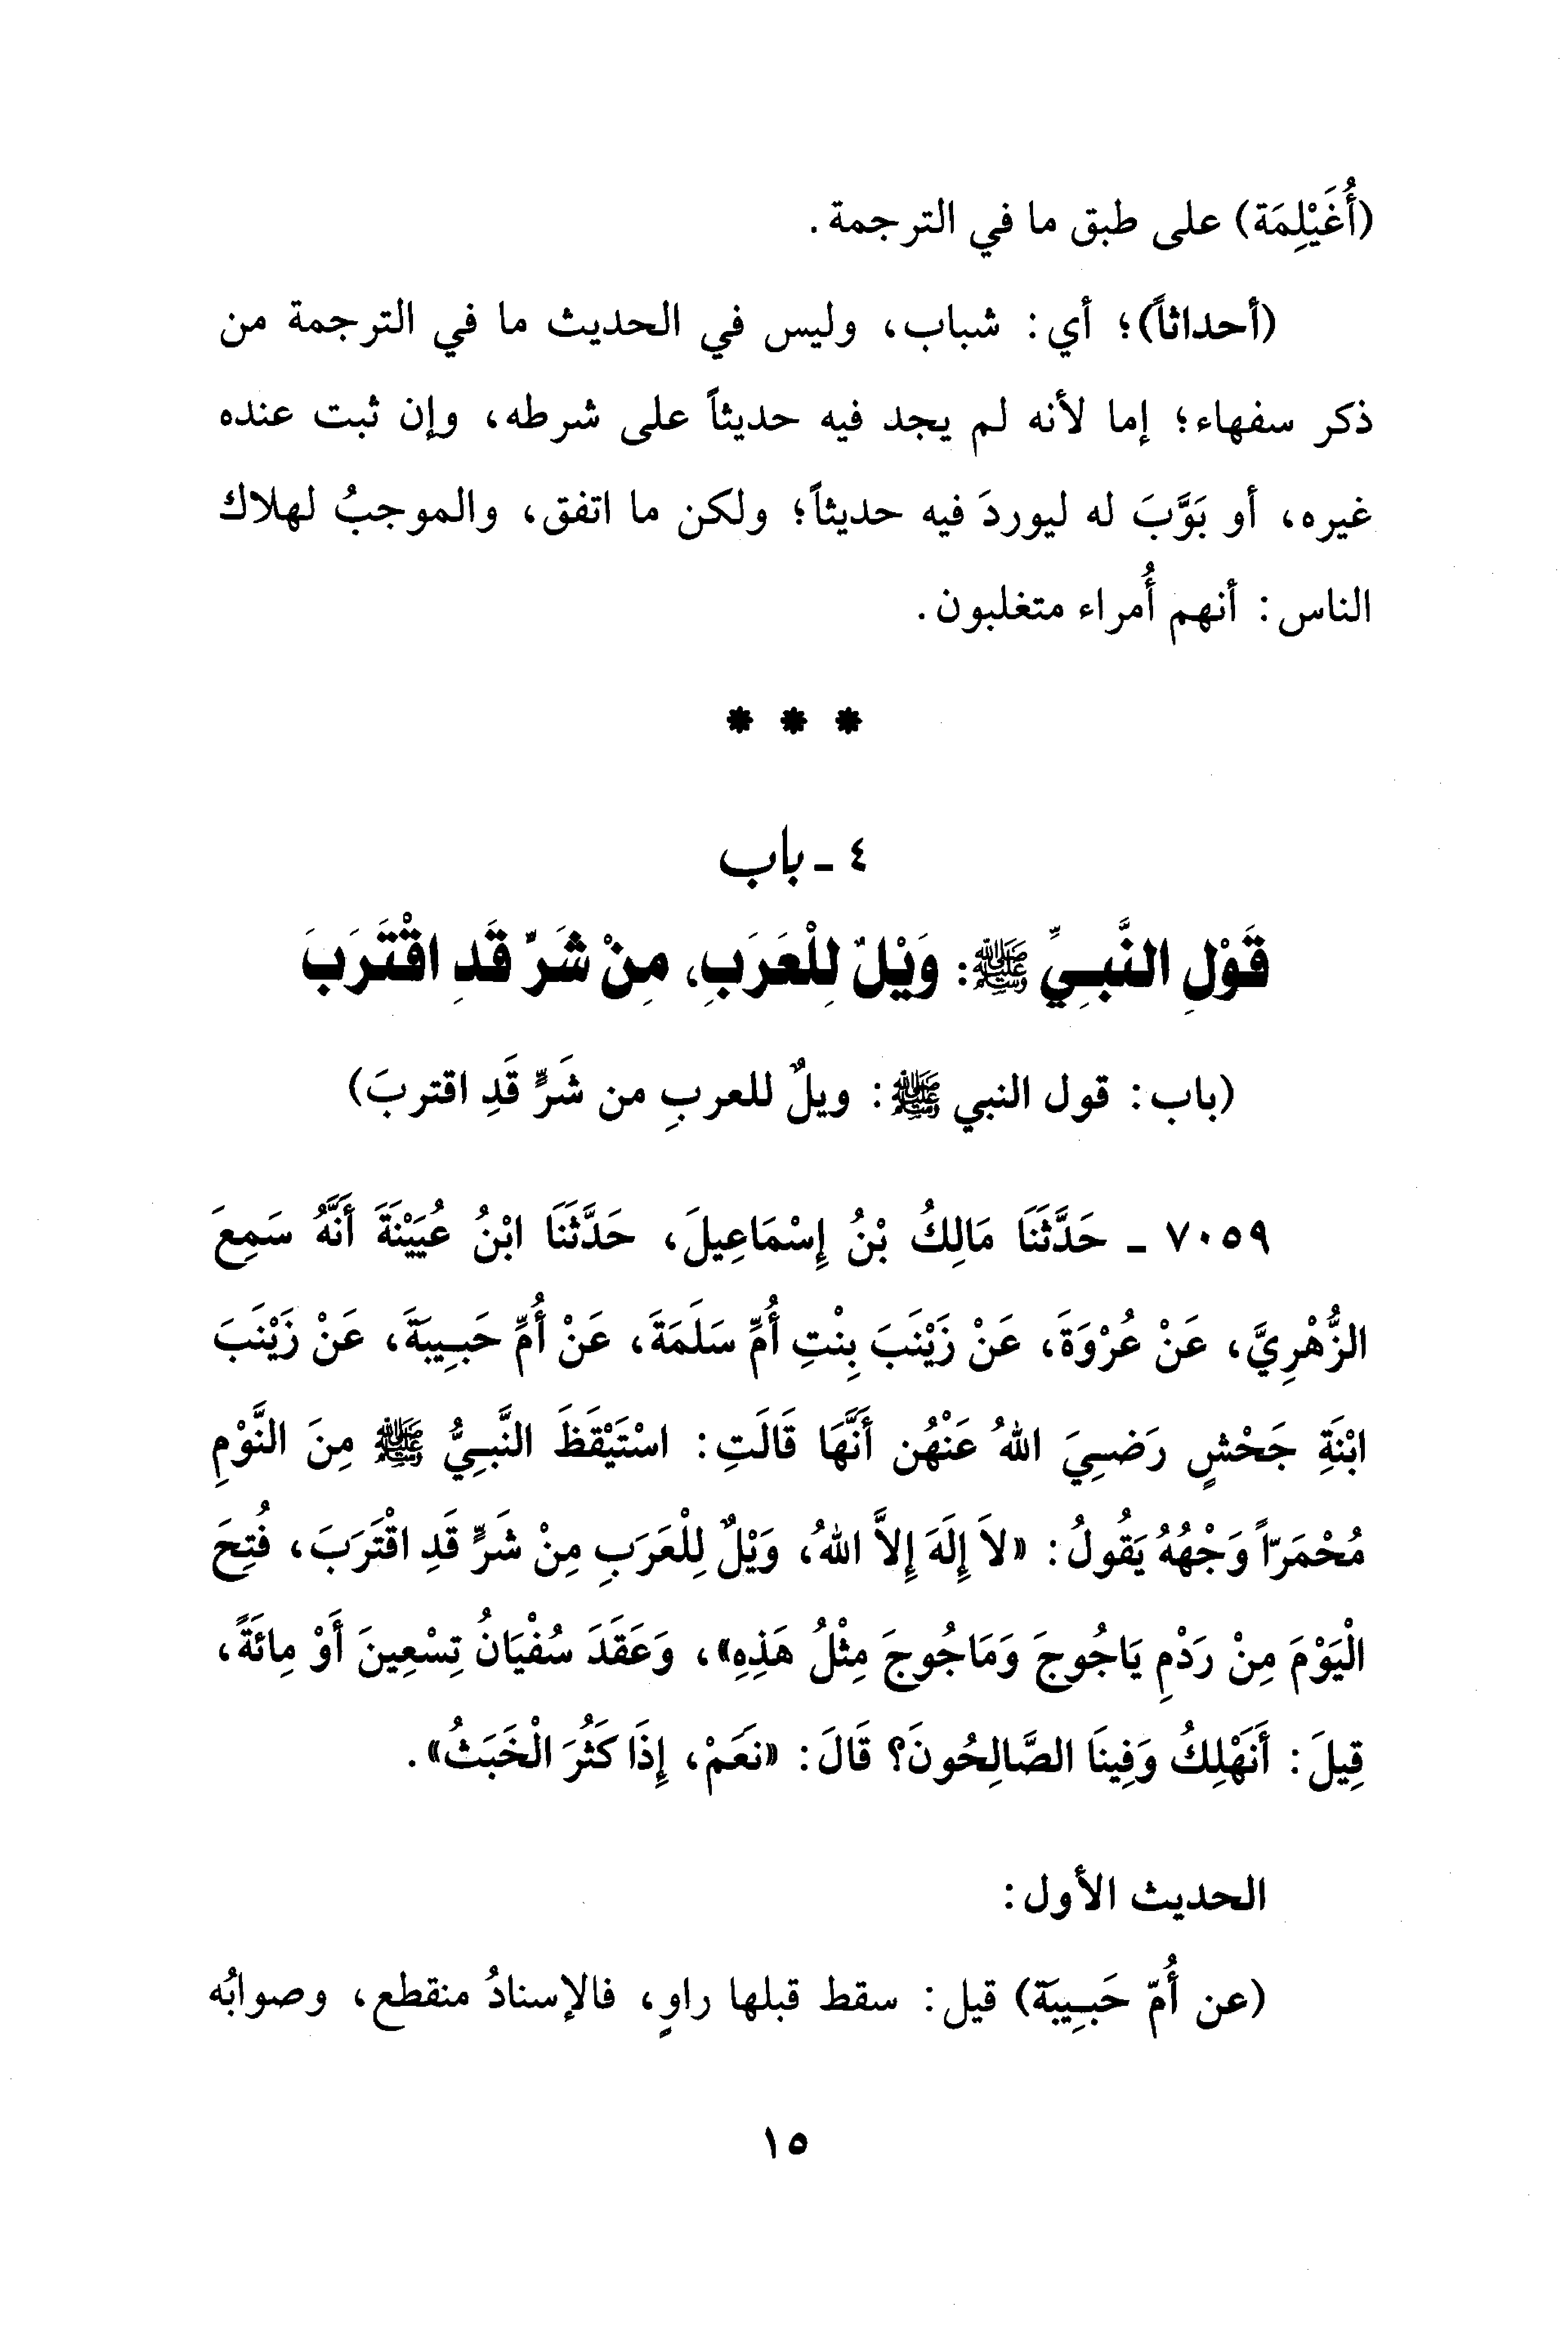 (أُغَيْلِمَة) على طبق ما في الترجمة.
(أحداثاً)؛ أي: شباب، وليس في الحديث ما في الترجمة من
ذكر سفهاء؛ إما لأنه لم يجد فيه حديثاً على شرطه، وإن ثبت عنده
غيره، أو بَوَّبَ له ليوردَ فيه حديثاً؛ ولكن ما اتفق، والموجبُ لهلاك
الناس: أنهم أُمراء متغلبون.
* * *
٤ - باب
قَوْلِ النَّبِيِّ ﷺ: وَيْلٌ لِلْعَرَبِ، مِنْ شَرٍّ قَدِ اقْتَرَبَ
(باب: قول النبي ﷺ: ويلٌ للعربِ من شَرٍّ قَدِ اقتربَ)
٧٠٥٩ - حَدَّثَنَا مَالِكُ بْنُ إِسْمَاعِيلَ، حَدَّثَنَا ابْنُ عُيَيْنَةَ أَنَّهُ سَمِعَ
الزُّهْرِيَّ، عَنْ عُرْوَةَ، عَنْ زَيْنَبَ بِنْتِ أُمِّ سَلَمَةَ، عَنْ أُمِّ حَبِيبَةَ، عَنْ زَيْنَبَ
ابْنَةِ جَحْشٍ رَضِيَ اللهُ عَنْهُن أَنَّهَا قَالَتِ: اسْتَيْقَظَ النَّبِيُّ ﷺ مِنَ النَّوْمِ
مُحْمَرّاً وَجْهُهُ يَقُولُ: «لاَ إِلَهَ إِلاَّ اللهُ، وَيْلٌ لِلْعَرَبِ مِنْ شَرٍّ قَدِ اقْتَرَبَ، فُتِحَ
الْيَوْمَ مِنْ رَدْمِ يَاجُوجَ وَمَاجُوجَ مِثْلُ هَذِهِ»، وَعَقَدَ سُفْيَانُ تِسْعِينَ أَوْ مِائَةً،
قِيلَ: أَنَهْلِكُ وَفِينَا الصَّالِحُونَ؟ قَالَ: «نَعَمْ، إِذَا كَثُرَ الْخَبَثُ».
الحديث الأول:
(عن أُمّ حَبِيبَة) قيل: سقط قبلها راوٍ، فالإسنادُ منقطع، وصوابُه
١٥